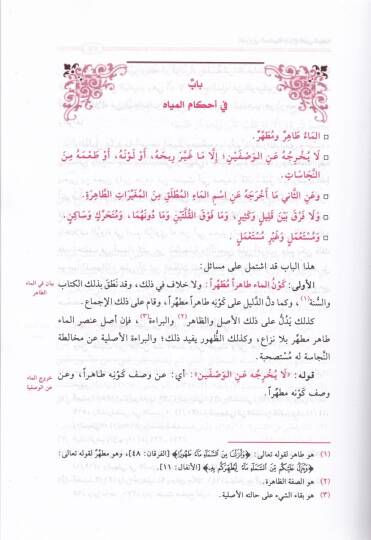 باب
في أحكام المياه
الماءُ طَاهِرٌ ومُطَهِّرٌ.
لَا يُخْرِجُهُ عَنِ الوَصْفَيْنِ: إِلَّا مَا غَيَّرَ رِيحَهُ، أَوْ لَوْنَهُ، أَوْ طَعْمَهُ مِنَ
النَّجَاسَاتِ.
وعَنِ الثَّانِي مَا أَخْرَجَهُ عَنِ اسْمِ المَاءِ المُطْلَقِ مِنَ المُغَيِّرَاتِ الطَّاهِرَةِ.
وَلَا فَرْقَ بَيْنَ قَلِيلٍ وَكَثِيرٍ، وَمَا فَوْقَ القُلَّتَيْنِ وَمَا دُونَهُمَا، وَمُتَحَرِّكٍ وَسَاكِنٍ.
وَمُسْتَعْمَلٍ وَغَيْرِ مُسْتَعْمَلٍ.
هذا الباب قد اشتمل على مسائل:
الأولى: كَوْنُ الماء طاهراً مُطَهِّراً: ولا خلاف في ذلك، وقد نَطَقَ بذلك الكتاب
بيان في الماء الطاهر
والسنَّة(١)، وكما دلَّ الدَّليل على كَوْنِه طاهراً مطهِّراً، وقام على ذلك الإجماع.
كذلك يَدُلُّ على ذلك الأصل والظاهر(٢) والبراءة(٣)، فإن أصل عنصر الماء
طاهر مطهِّر بلا نزاع، وكذلك الظُّهور يفيد ذلك؛ والبراءة الأصلية عن مخالطة
النَّجاسة له مُسْتصحبة.
قوله: «لَا يُخْرِجُه عَنِ الوَصْفَيْنِ»: أي: عن وصف كَوْنِه طاهراً، وعن
خروج الماء عن الوصفية
وصف كَوْنِه مطهِّراً.
(١) هو طاهر لقوله تعالى: ﴿وَأَنزَلْنَا مِنَ ٱلسَّمَآءِ مَآءً طَهُورًا﴾ [الفرقان: ٤٨]، وهو مطهِّرٌ لقوله تعالى:
﴿وَيُنَزِّلُ عَلَيْكُم مِّنَ ٱلسَّمَآءِ مَآءً لِّيُطَهِّرَكُم بِهِۦ﴾ [الأنفال: ١١].
(٢) هو الصفة الظاهرة.
(٣) هو بقاء الشيء على حالته الأصلية.